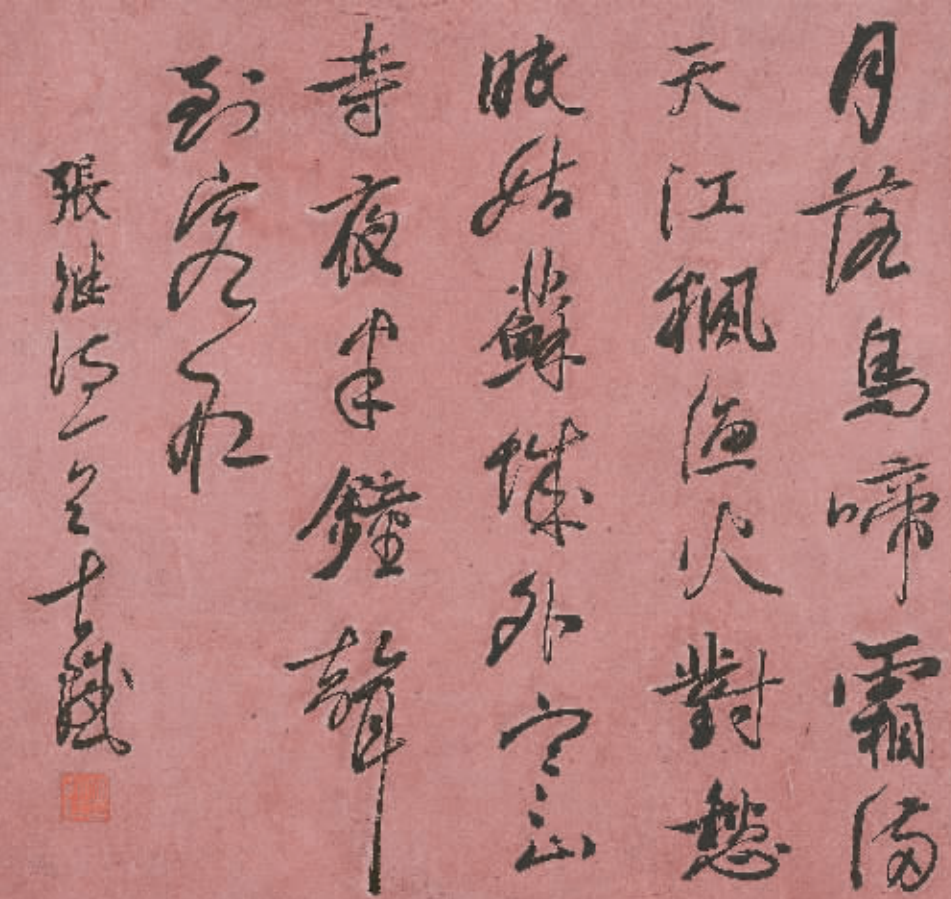 月落烏啼霜滿
天江楓漁火對愁
眠姑蘇城外寒山
寺夜半鐘聲
到客船
張繼詩一 士